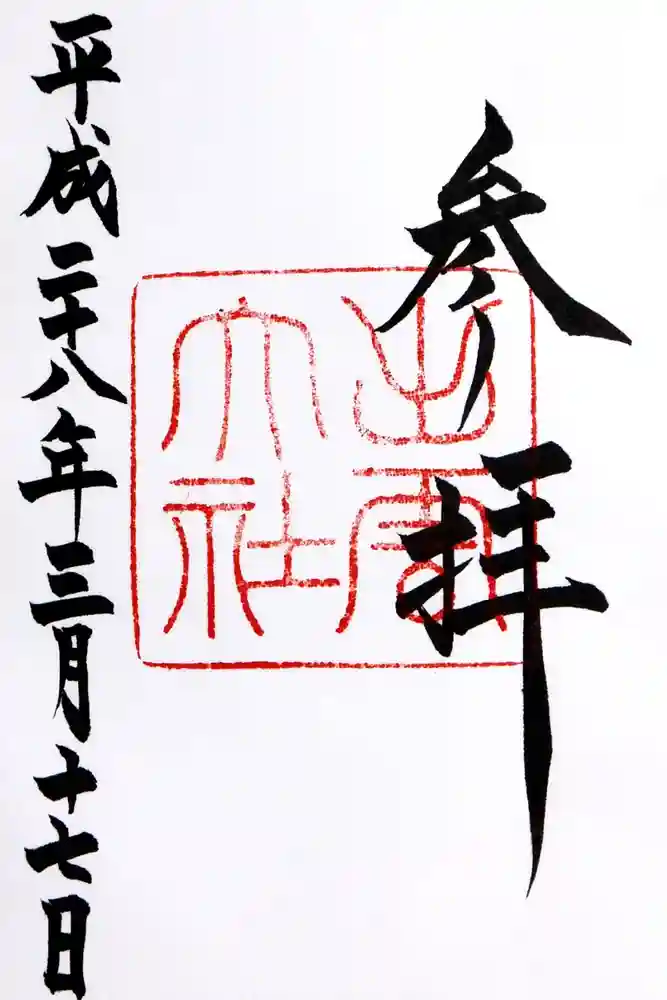 参拝
出雲
大社
平成二十八年三月十七日